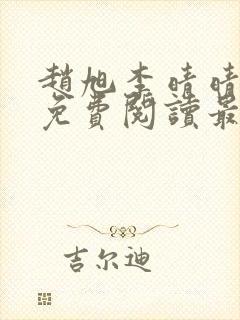 趙旭李晴晴
免費閱讀最
吉尔迪